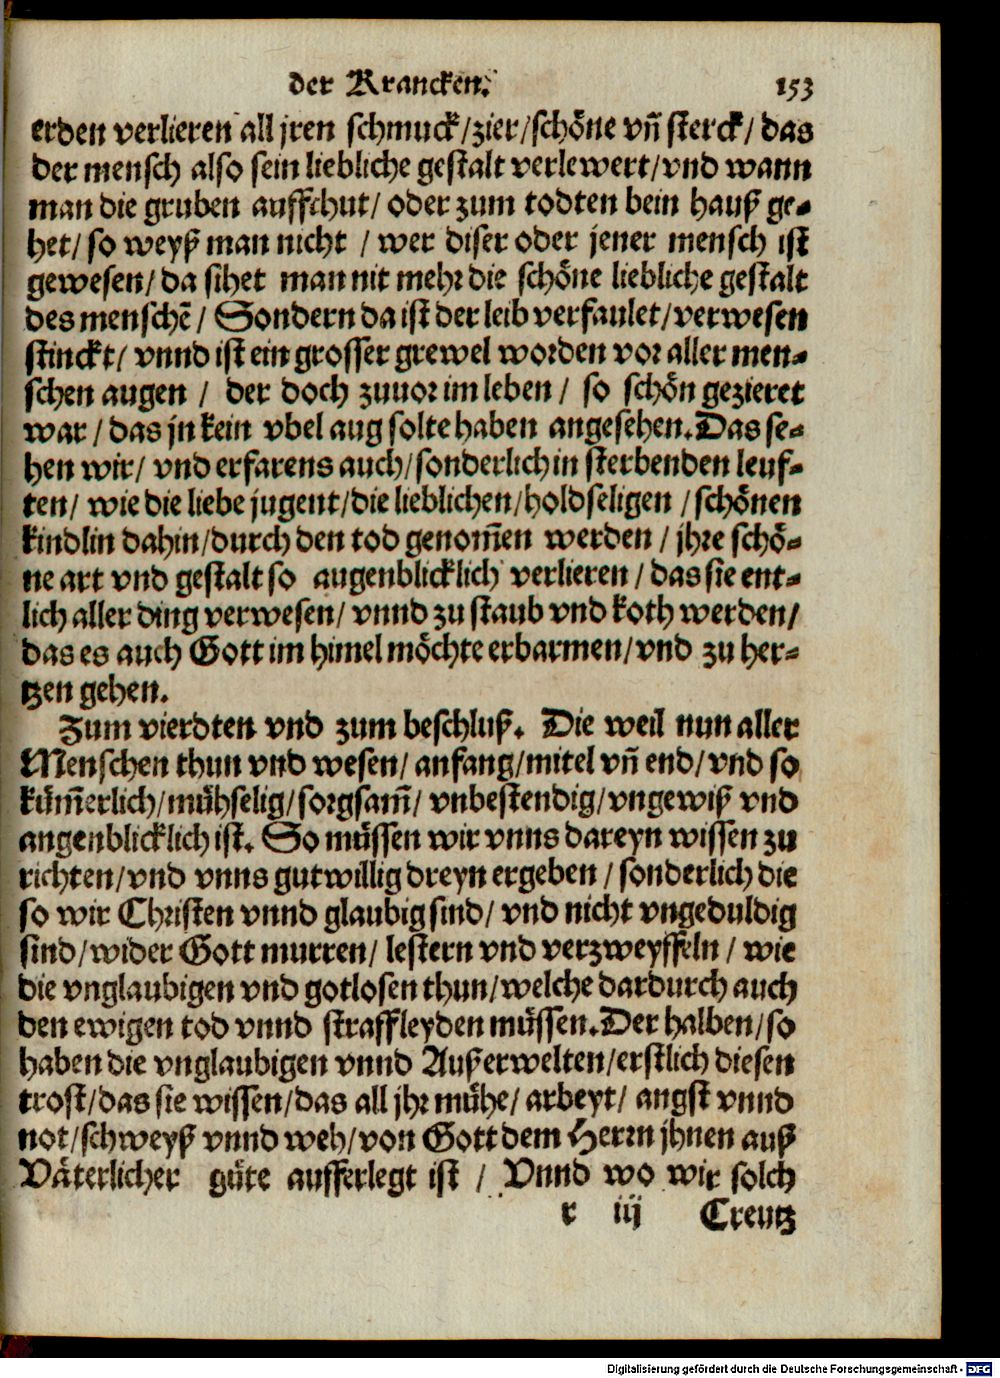 der Krancken. 153
erden verlieren all jren schmuck/zier/schöne vñ sterck/ das
der mensch also sein liebliche gestalt verlewert/vnd wann
man die gruben auffschut/ oder zum todten bein hauß ge-
het/ so weyß man nicht / wer diser oder jener mensch ist
gewesen/ da sihet man nit mehr die schöne liebliche gestalt
des menschẽ/ Sondern da ist der leib verfaulet/verwesen
stinckt/ vnnd ist ein grosser grewel worden vor aller men-
schen augen / der doch zuuor im leben / so schön gezieret
war / das jn kein vbel aug solte haben angesehen. Das se-
hen wir/ vnd erfarens auch/sonderlich in sterbenden leuf-
ten/ wie die liebe jugent/die lieblichen/holdseligen /schönen
kindlin dahin/durch den tod genom̃en werden / jhre schö-
ne art vnd gestalt so augenblicklich verlieren / das sie ent-
lich aller ding verwesen/ vnnd zu staub vnd koth werden/
das es auch Gott im himel möchte erbarmen/vnd zu her-
tzen gehen.
Zum vierdten vnd zum beschluß. Die weil nun aller
Menschen thun vnd wesen/ anfang/mitel vñ end/vnd so
küm̃erlich/mühselig/sorgsam̃/ vnbestendig/vngewiß vnd
angenblicklich ist. So müssen wir vnns dareyn wissen zu
richten/vnd vnns gutwillig dreyn ergeben /sonderlich die
so wir Christen vnnd glaubig sind/ vnd nicht vngeduldig
sind/wider Gott murren/ lestern vnd verzweyffeln / wie
die vnglaubigen vnd gotlosen thun/welche dardurch auch
den ewigen tod vnnd straffleyden müssen. Der halben/so
haben die vnglaubigen vnnd Außerwelten/erstlich diesen
trost/das sie wissen/das all jhr mühe/ arbeyt/ angst vnnd
not/schweyß vnnd weh/von Gott dem Herrn jhnen auß
Väterlicher güte aufferlegt ist / Vnnd wo wir solch
r iij Creutz
Digitalisierung gefördert durch die Deutsche Forschungsgemeinschaft - DFG